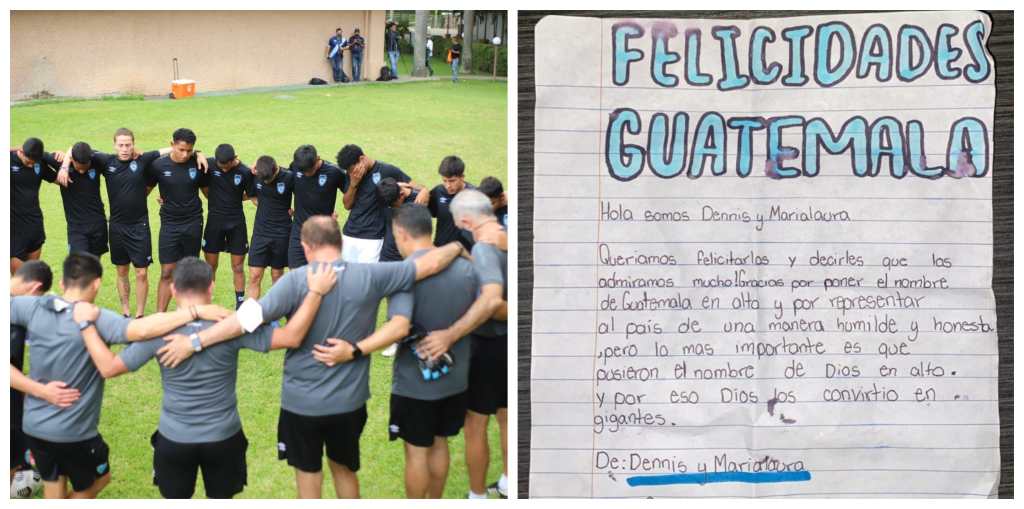 FELICIDADES
GUATEMALA
Hola somos Dennis y Marialaura
Queriamos felicitarlos y decirles que los
admiramos mucho! Gracias por poner el nombre
de Guatemala en alto y por representar
al país de una manera humilde y honesta
,pero lo mas importante es que
pusieron el nombre de Dios en alto.
y por eso Dios los convirtio en
gigantes.
De: Dennis y Marialaura